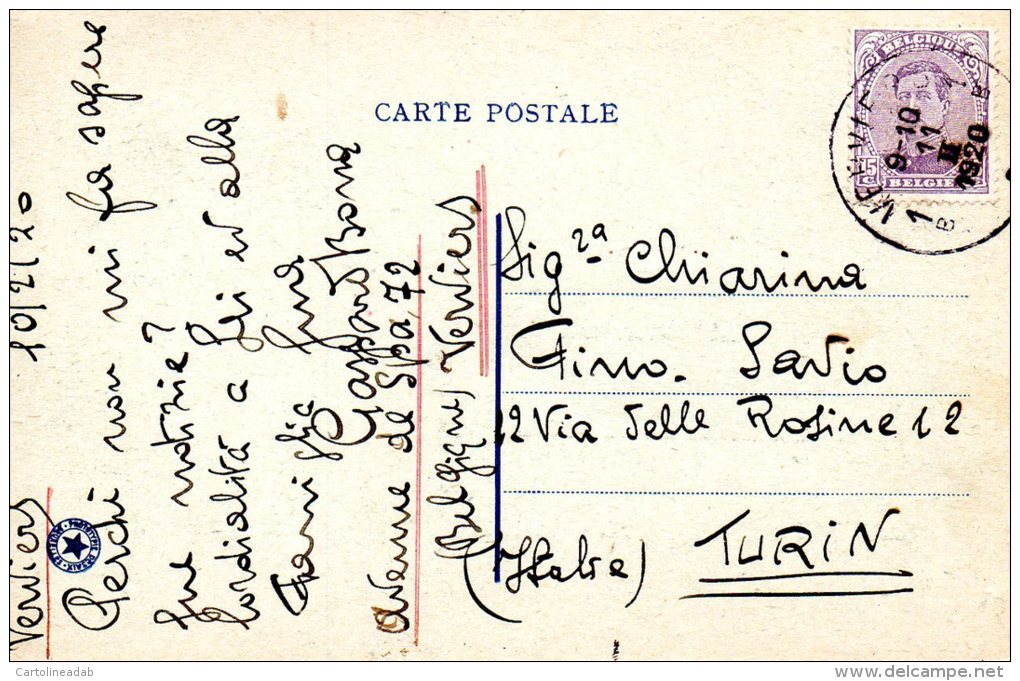 CARTE POSTALE
BELGIQUE
15 C
BELGIË
VERVIERS
9-10
11
II
1920
1 B
Verviers 10/2/20
Perché non mi fa sapere
sue notizie?
Cordialità a Lei ed alla
famiglia sua
Bona
Avenue de Spa, 72
(Belgique) Verviers
Sig.ra Chiarina
Fino. Savio
12 Via delle Rosine 12
TURIN
(Italie)
Cartolineadab
www.delcampe.net